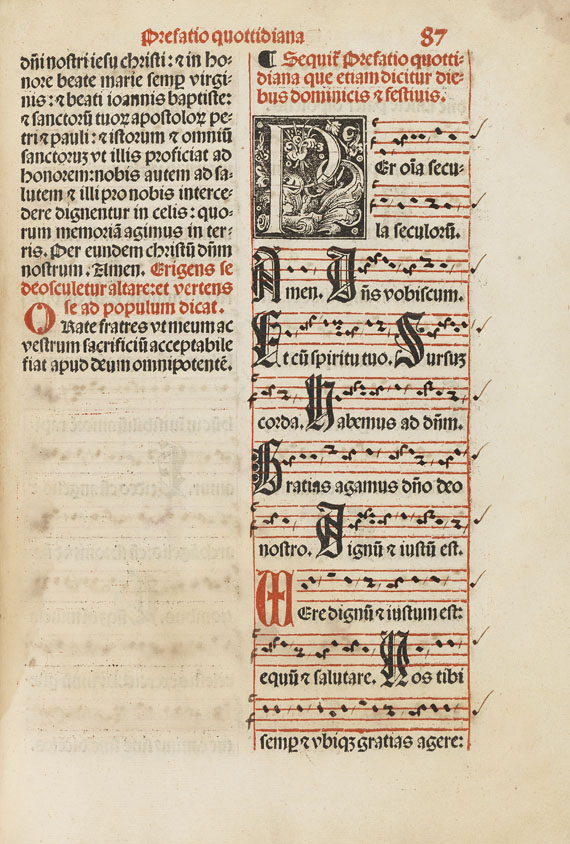 Prefatio quottidiana 87
dñi nostri iesu christi: ⁊ in ho-
nore beate marie semꝑ virgi-
nis: ⁊ beati ioannis baptiste:
⁊ sanctorũ tuoꝝ apostoloꝝ pe-
tri ⁊ pauli: ⁊ istorum ⁊ omniũ
sanctoruꝫ vt illis proficiat ad
honorem: nobis autem ad sa-
lutem ⁊ illi pro nobis interce-
dere dignentur in celis: quo-
rum memoriã agimus in ter-
ris. Per eundem christũ dñm
nostrum. Amen. Erigens se
deosculetur altare: et vertens
se ad populum dicat.
ORate fratres vt meum ac
vestrum sacrificiũ acceptabile
fiat apud deum omnipotentẽ.
¶ Sequit̃ Prefatio quotti-
diana que etiam dicitur die-
bus dominicis ⁊ festiuis.
PEr oĩa secu-
la seculorũ.
Amen. Dñs vobiscum.
Et cũ spiritu tuo. Sursuꝫ
corda. Habemus ad dñm.
Gratias agamus dño deo
nostro. Dignũ ⁊ iustũ est.
VEre dignũ ⁊ iustum est:
equũ ⁊ salutare. Nos tibi
semꝑ ⁊ vbiqꝫ gratias agere: